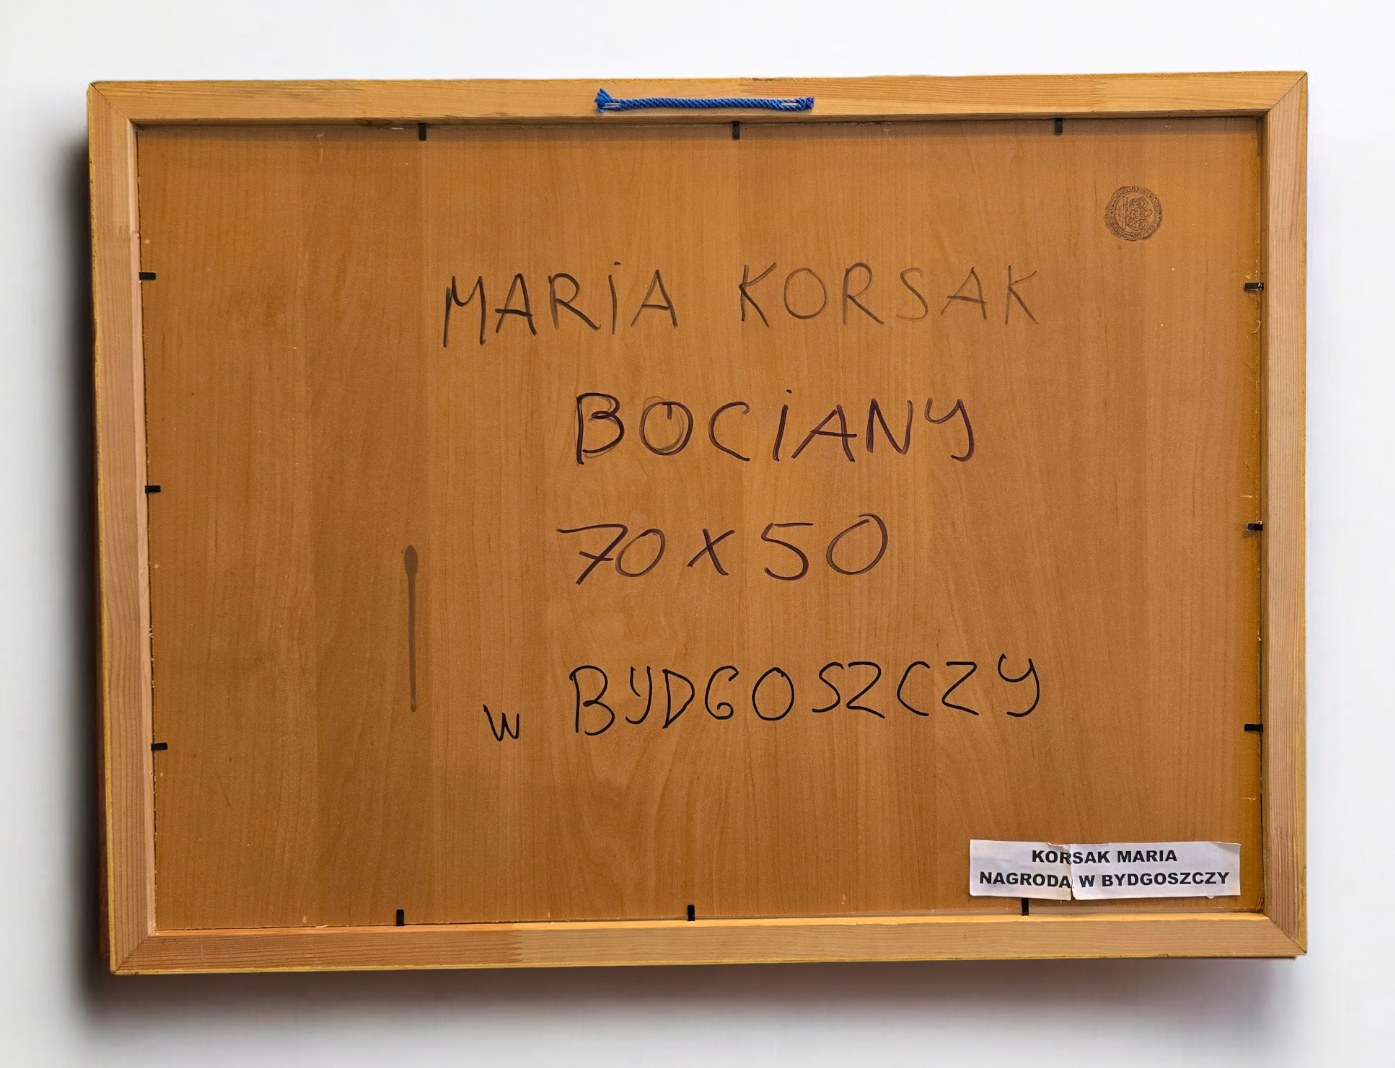 MARiA KORSAK
BOCiANY
70 x 50
w BYDGOSZCZY
KORSAK MARIA
NAGRODA W BYDGOSZCZY